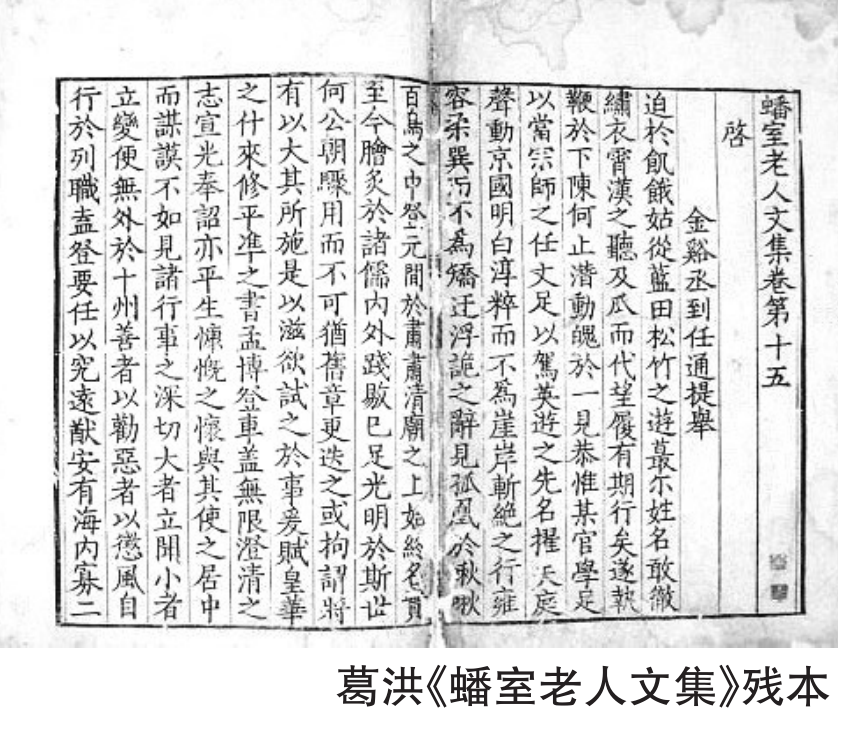 蟠室老人文集卷第十五
啓
金谿丞到任通提舉
迫於飢餓姑從藍田松竹之遊蕞尓姓名敢徹
繡衣霄漢之聽及瓜而代望履有期行矣遂執
鞭於下陳何止潛動魄於一見恭惟某官學足
以當宗師之任文足以駕英遊之先名擢天庭
聲動京國明白淳粹而不爲崖岸斬絶之行雍
容柔巽而不爲矯迂浮詭之辭見孤鳳於啾啾
百鳥之中登元間於肅肅清廟之上如終名貫
至今膾炙於諸儒内外踐敭已足光明於斯世
何公朝驟用而不可猶舊章更迭之或拘謂將
有以大其所施是以滋欲試之於事爰賦皇華
之什來修平準之書孟博登車盖無限澄清之
志宣光奉詔亦平生慷慨之懷與其使之居中
而謀謨不如見諸行事之深切大者立開小者
立變便無外於十州善者以勸惡者以懲風自
行於列職盍登要任以究遠猷安有海内寡二
葛洪《蟠室老人文集》残本